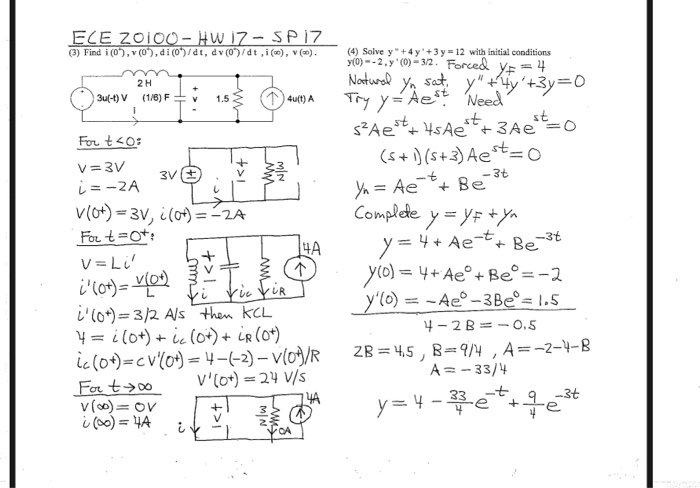 ECE 20100 - HW 17 - SP 17
(3) Find i(0⁺), v(0⁺), di(0⁺)/dt, dv(0⁺)/dt, i(∞), v(∞).
2 H
3u(-t) V
(1/6) F
+
v
-
1.5
4u(t) A
i
For t<0:
v = 3V
i = -2A
3V
+
-
i
+
v
-
3/2
v(0+) = 3V, i(0+) = -2A
For t=0+:
v = Li'
i'(0+) = v(0+)/L
+
v
-
i
ic
iR
4A
i'(0+) = 3/2 A/s then KCL
4 = i(0+) + ic(0+) + iR(0+)
ic(0+) = cv'(0+) = 4-(-2)-v(0+)/R
For t→∞
v'(0+) = 24 V/s
v(∞) = 0V
i(∞) = 4A
i
+
v
-
3/2
0A
4A
(4) Solve y"+4y'+3y=12 with initial conditions
y(0)=-2, y'(0)=3/2. Forced yF = 4
Natural yn sat. y"+4y'+3y=0
Try y = Ae^st. Need
s²Ae^st + 4sAe^st + 3Ae^st = 0
(s+1)(s+3)Ae^st = 0
yn = Ae^-t + Be^-3t
Complete y = yF + yn
y = 4 + Ae^-t + Be^-3t
y(0) = 4 + Ae⁰ + Be⁰ = -2
y'(0) = -Ae⁰ - 3Be⁰ = 1.5
4 - 2B = -0.5
2B = 4.5, B = 9/4, A = -2-4-B
A = -33/4
y = 4 - 33/4 e^-t + 9/4 e^-3t